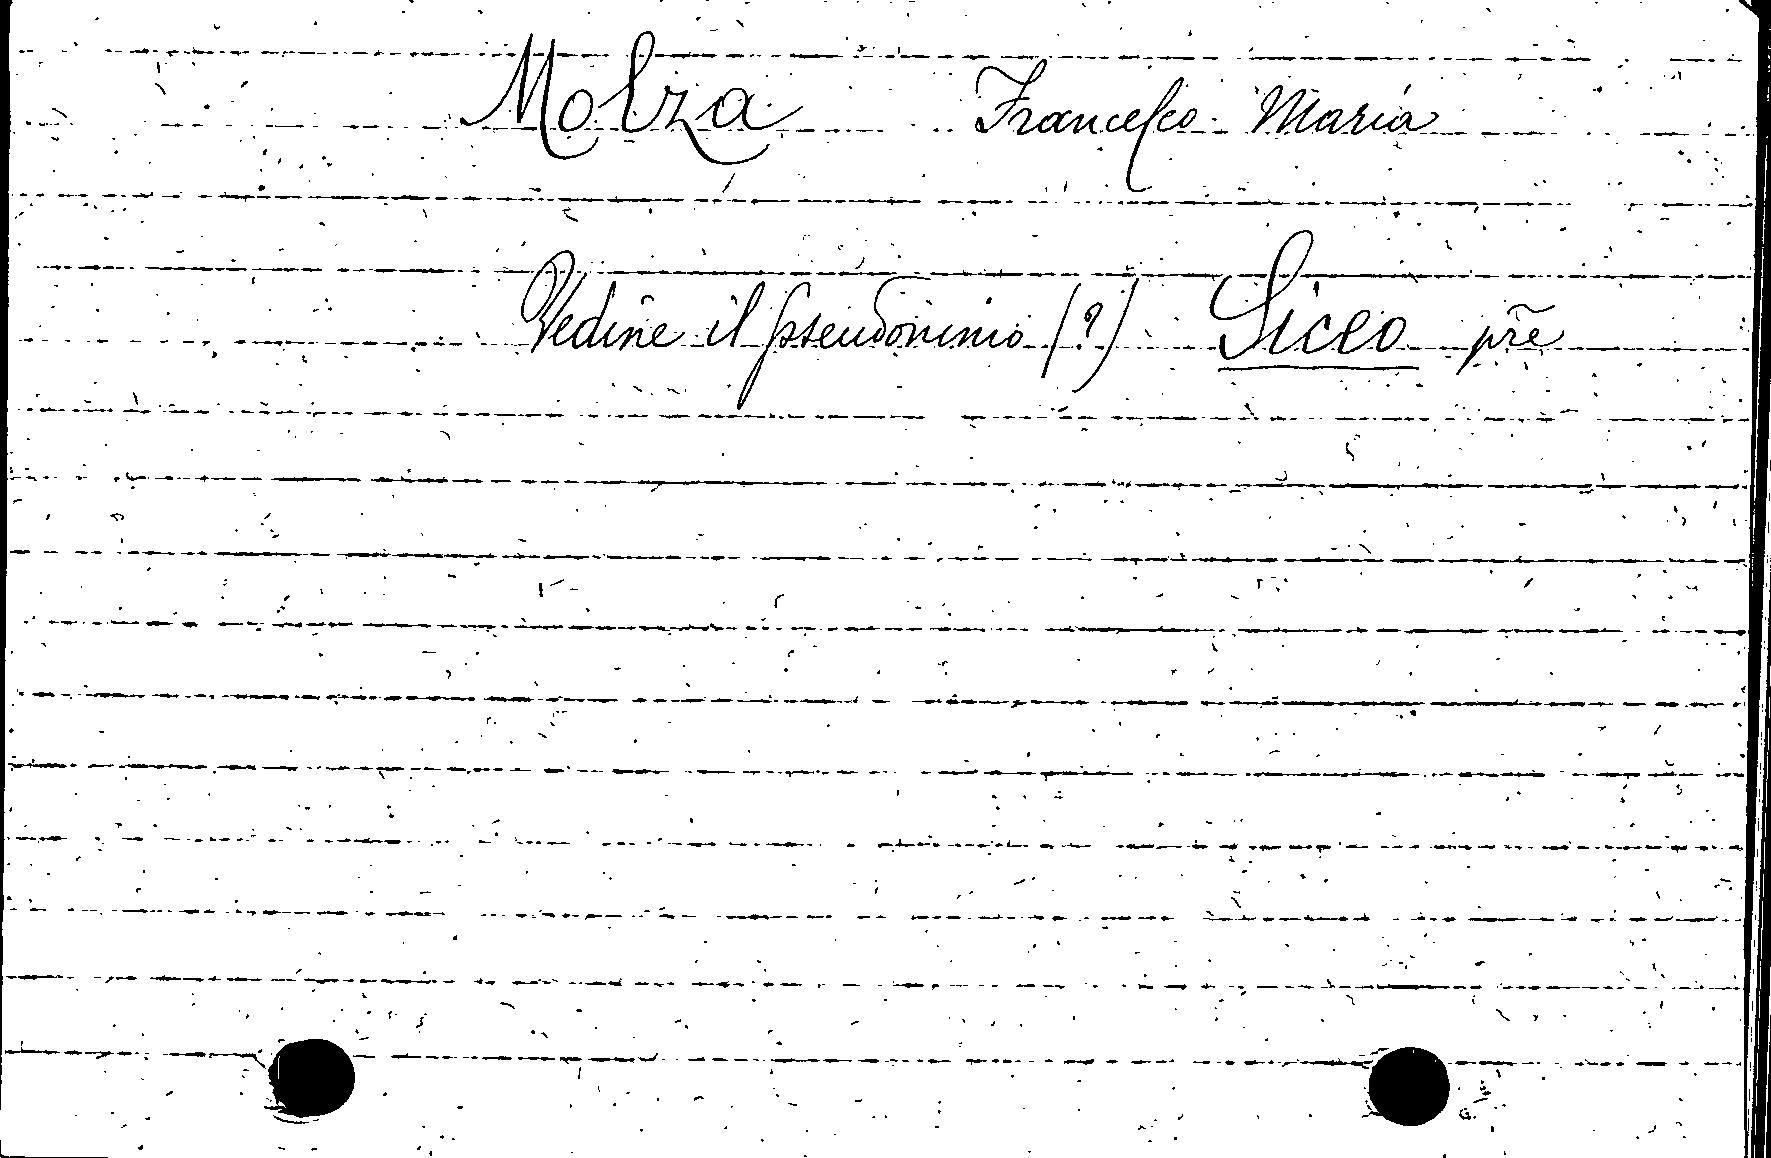 Molza Francesco Maria
Vedine il pseudonimo (?) Siceo prē